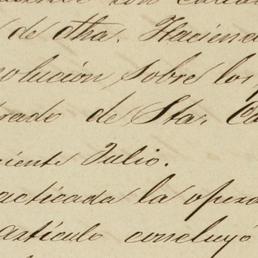 de dha. Haciend
solución sobre los
rado de Sta. Ca
iente Julio.
acticada la oper
artículo concluyó